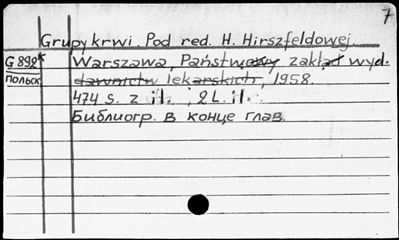 7
Grupy krwi. Pod red. H. Hirszfeldowej.
G892* Warszawa, Państwowy zakład wyd.
польск dawnictw lekarskich, 1958.
474 s. z il. ; 2 L. il.
Библиогр. в конце глав.